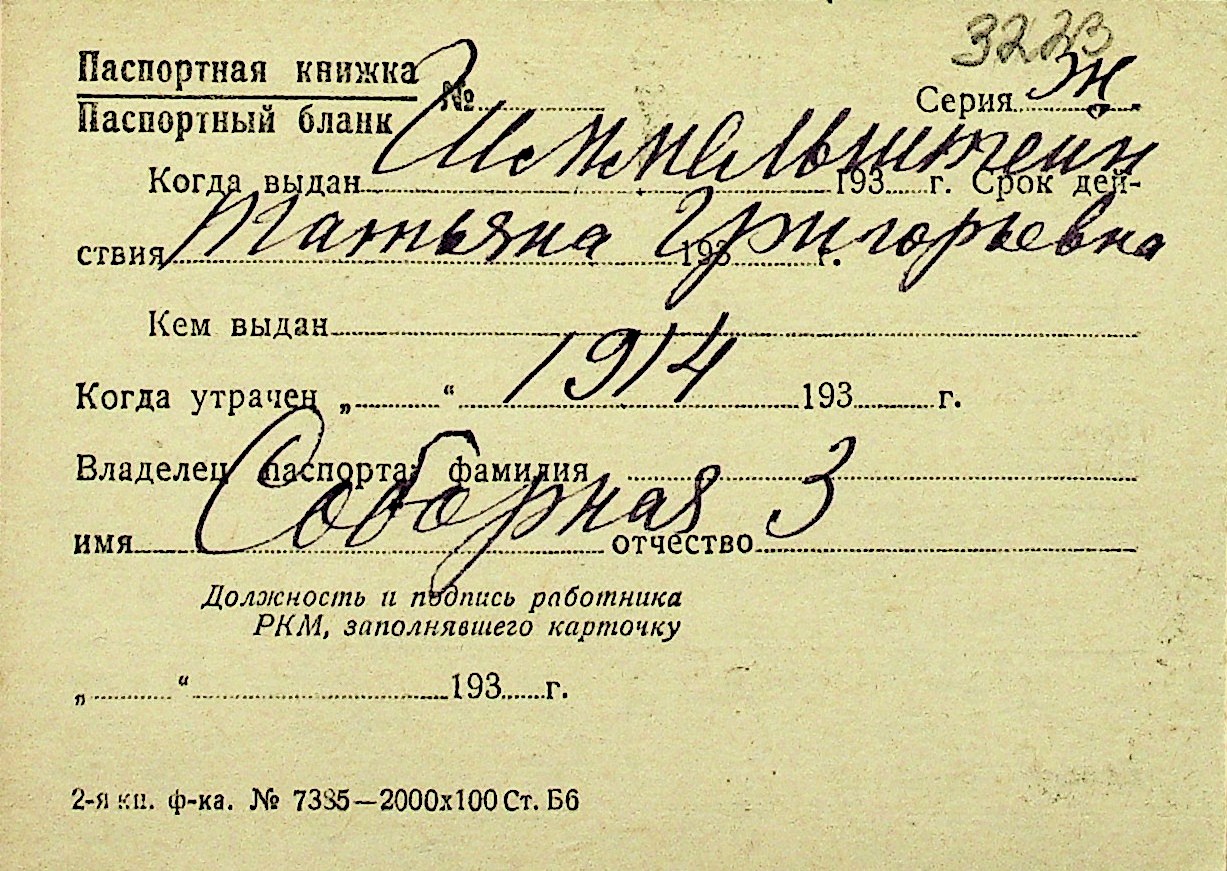 3223
Паспортная книжка
Паспортный бланк
№
Серия
Когда выдан 193 г. Срок дей-
Татьяна Григорьевна
ствия 193 г.
Кем выдан
1914
Когда утрачен „ “ 193 г.
Владелец паспорта: фамилия
Соборная 3
имя отчество
Должность и подпись работника
РКМ, заполнявшего карточку
„ “ 193 г.
2-я кн. ф-ка. № 7385—2000х100 Ст. Б6